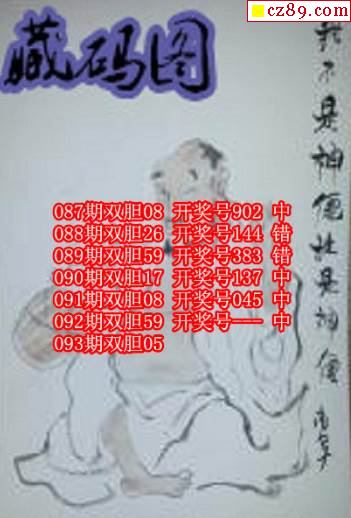 cz89.com
藏码图
087期双胆08 开奖号902 中
088期双胆26 开奖号144 错
089期双胆59 开奖号383 错
090期双胆17 开奖号137 中
091期双胆08 开奖号045 中
092期双胆59 开奖号--- 中
093期双胆05
不是神仙
是神仙